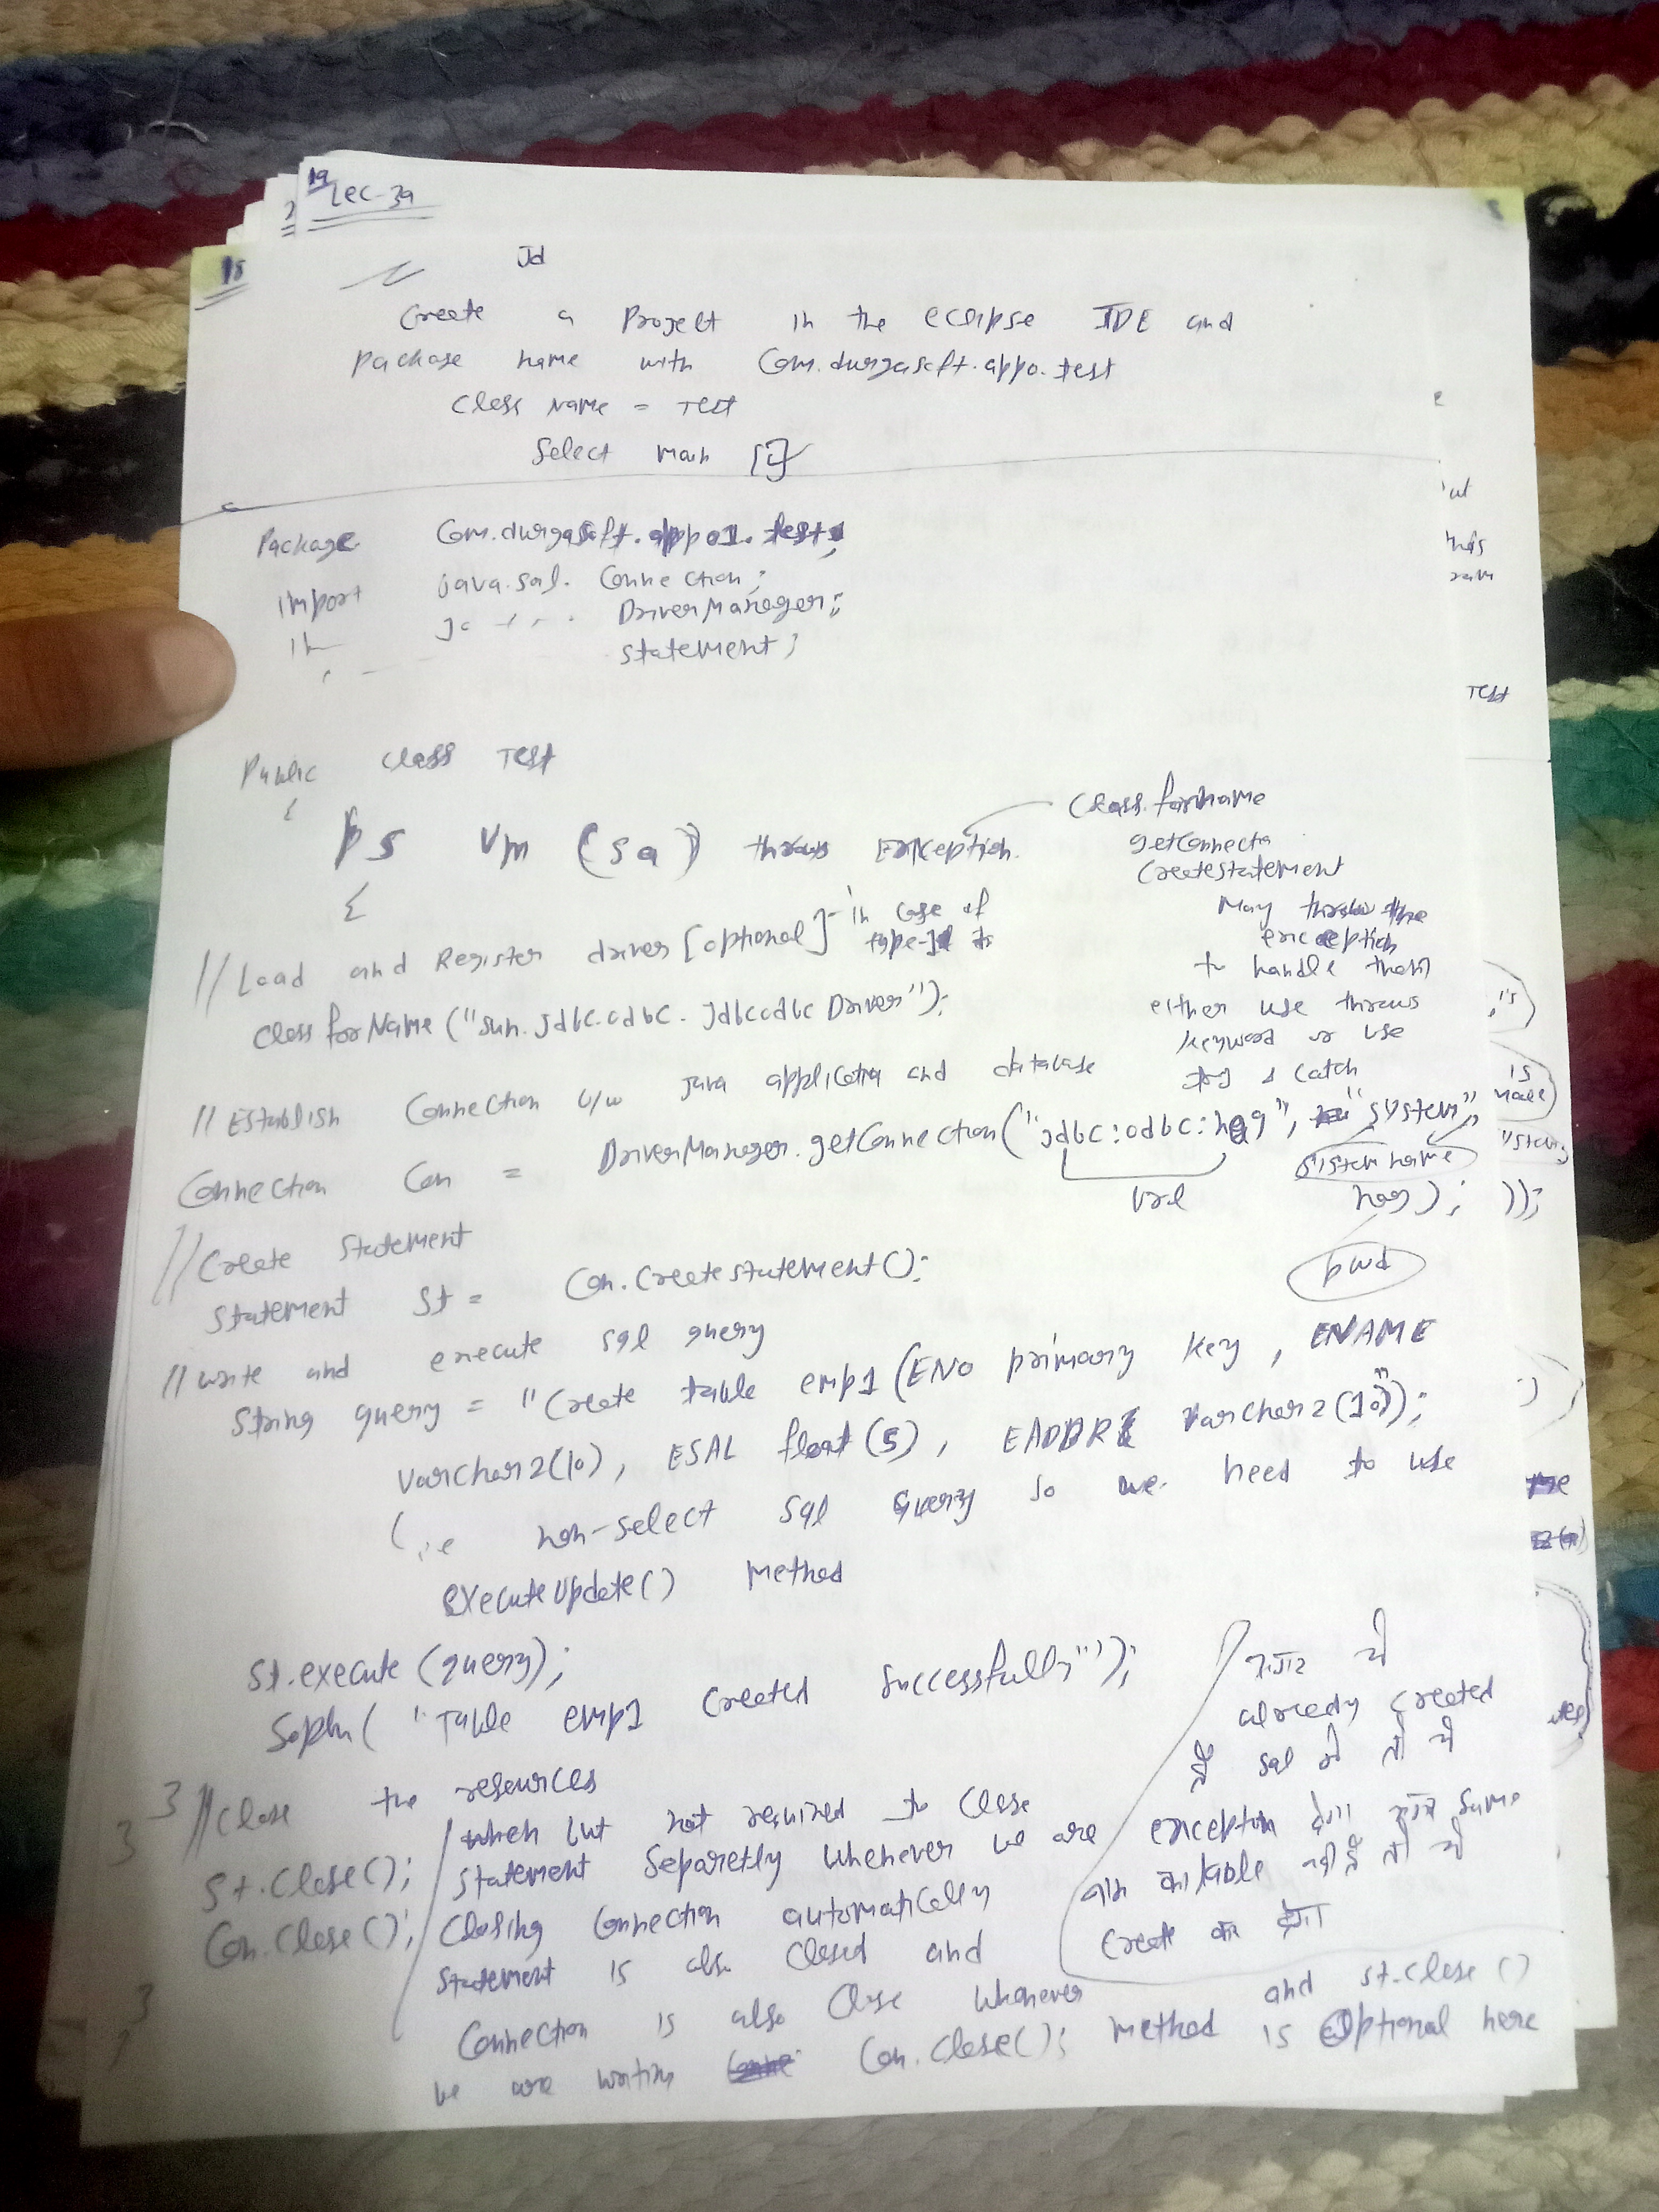 19 Lec-39
2
18
Jd
Create a Project in the eclipse IDE and
package name with Com.durgasoft.app0.test
Class Name = Test
Select main []
Package Com.durgasoft.app01.test;
import java.sql. Connection;
DriverManager;
statement;
Public Class Test
{
ps vm (sa) throws Exception
{
Class.forName
getConnectn
Createstatement
May throw the
exception
to handle them
either use throws
keyword or use
try & catch
//Load and Register driver [optional] in case of
type-1
Class forName ("sun.jdbc.odbc. JdbcOdbc Driver");
// Establish Connection b/w java application and database
Connection Con = DriverManager.getConnection("jdbc:odbc:nag", "system",
url
system name
nag);
pwd
//Create Statement
Statement St = Con.Createstatement();
// write and execute sql query
String query = "Create table emp1 (ENO primary key, ENAME
varchar2(10), ESAL float(5), EADDR varchar2(10)");
(i.e non-select sql query so we need to use
executeUpdate() method
St.execute (query);
Sopln( "Table emp1 Created Successfully");
अगर ये
already created
है sql में तो ये
exception देगा अगर same
नाम का table नहीं है तो ये
Create कर देगा
} //Close the resources
}
St.Close();
Con.Close();
when but not required to close
statement Separetly whenever we are
Closing Connection automatically
statement is also closed and
Connection is also Close whenever
we are writing Con.Close(); method and st.close()
is optional here
}
Test